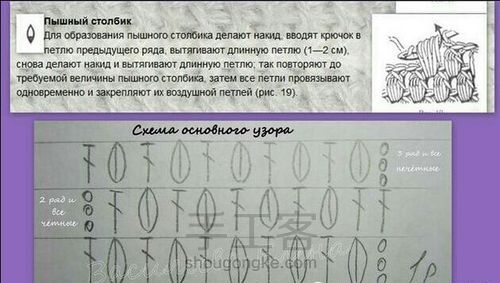 Пышный столбик
Для образования пышного столбика делают накид, вводят крючок в
петлю предыдущего ряда, вытягивают длинную петлю (1—2 см),
снова делают накид и вытягивают длинную петлю; так повторяют до
требуемой величины пышного столбика, затем все петли провязывают
одновременно и закрепляют их воздушной петлей (рис. 19).
Схема основного узора
3 ряд и все
нечётные
2 ряд и
все
чётные
手工客
shougongke.com
1р